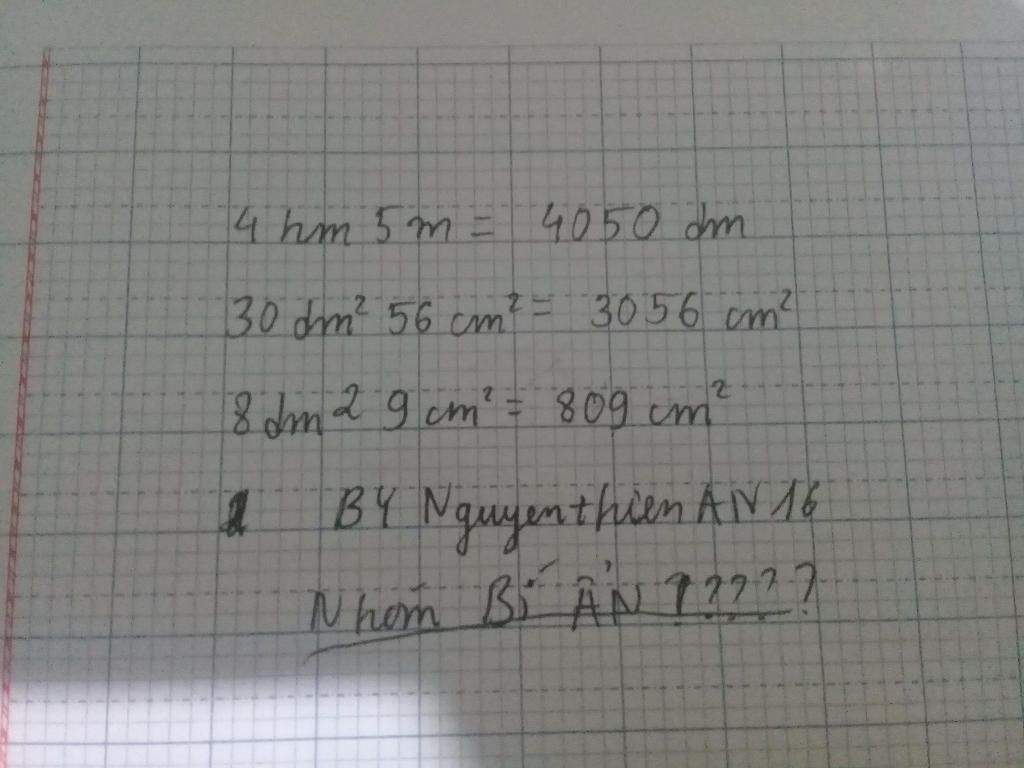 4 hm 5 m = 4050 dm
30 dm² 56 cm² = 3056 cm²
8 dm 2 9 cm² = 809 cm²
BY NguyenthienAN16
Nhóm Bí ẨN ?????